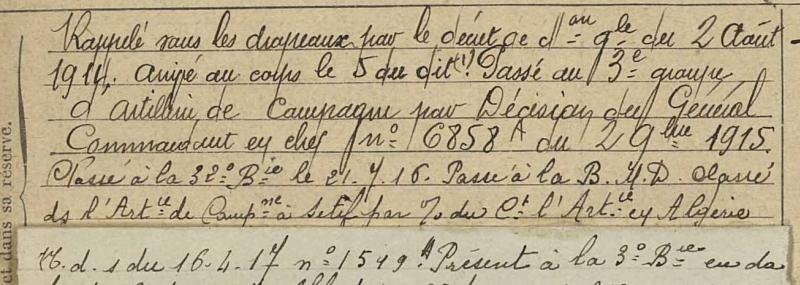 Rappelé sous les drapeaux par le décret de M.on G.le du 2 Août
1914. Arrivé au corps le 5 du dit (1). Passé au 3e groupe
d'artillerie de Campagne par Décision du Général
Commandant en chef no 6858 A du 2 9bre 1915.
Passé à la 32o B.ie le 21.7.16. Passé à la B.M.D. classé
ds l'Art.ie de Camp.ne à Sétif par du Ct l'Art.ie en Algérie
du 16.4.17 no 1549 A Présent à la 3o B.ie en da
ct dans sa réserve.